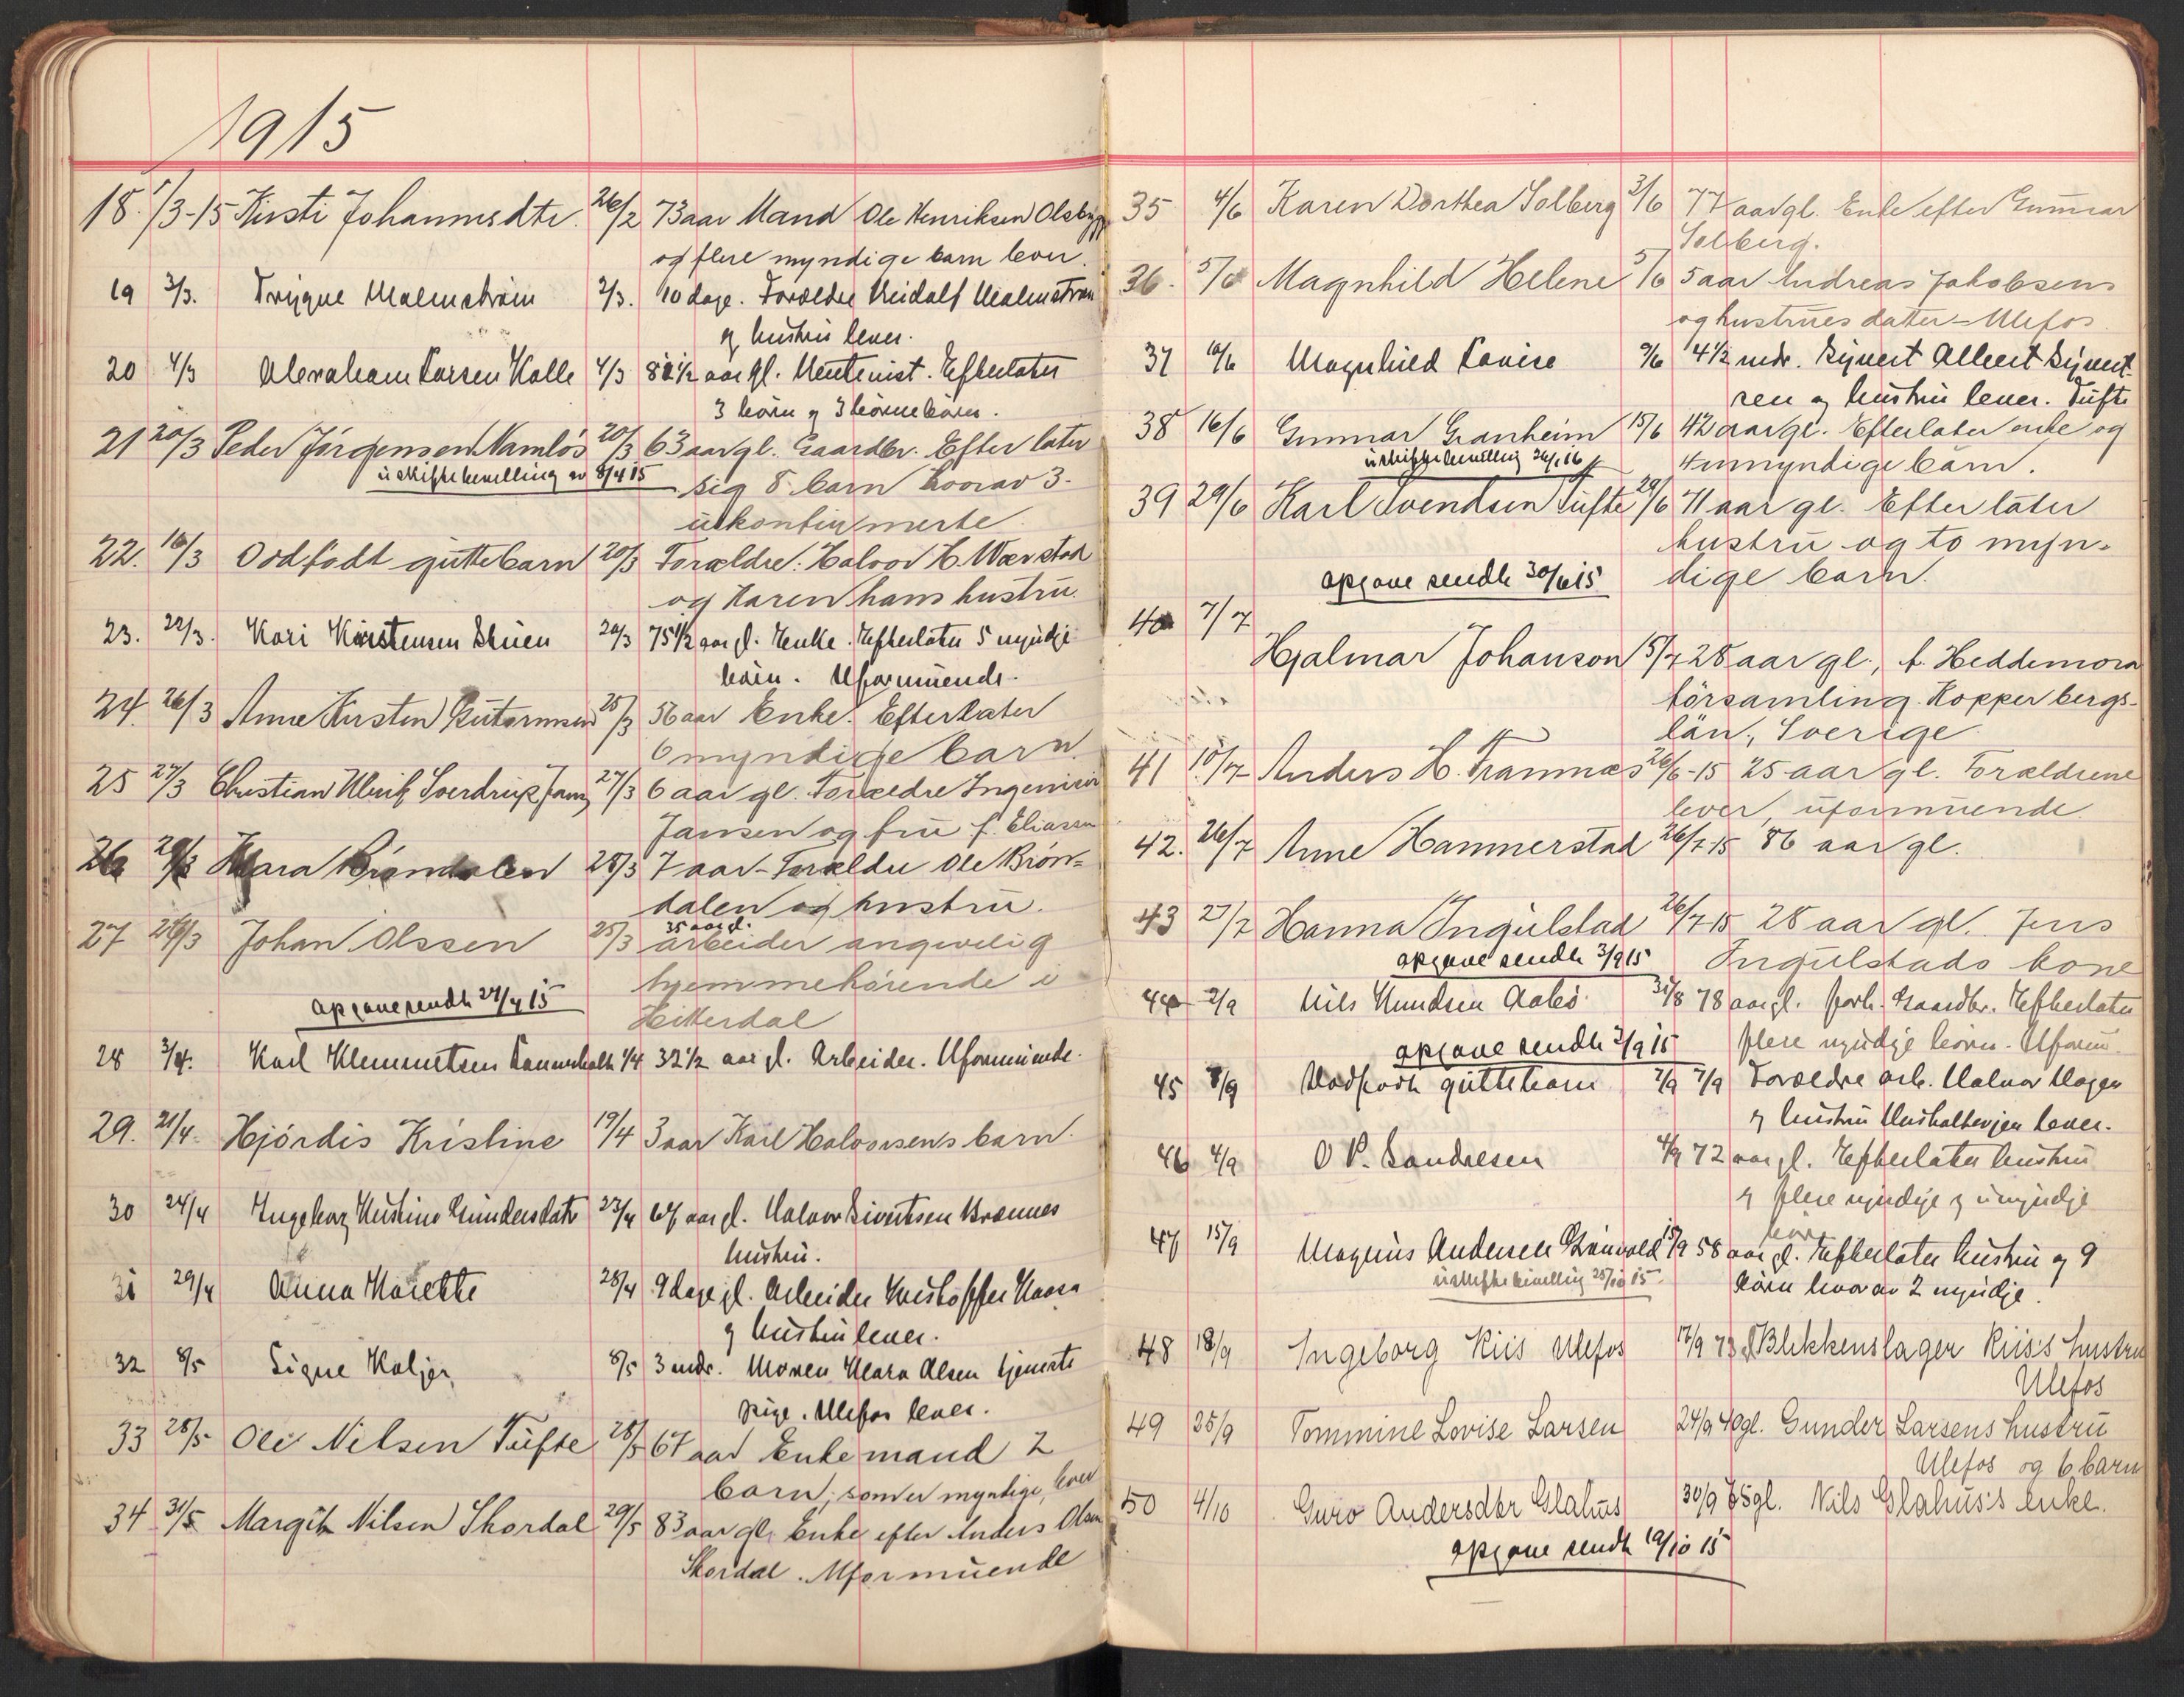 1915
18. 1/3-15 Kirsti Johannesdtr. 26/2 73 aar Mand Ole Henriksen Olsbrygg
og flere myndige barn lever.
19 3/3. Trygve Malmström 2/3. 10 dage. Forældre Meidalf Malmström
og hustru lever.
20 4/3 Abraham Larsen Kolle 4/3 81 1/2 aar gl. Efterlater
3 börn og 3 börnebörn.
21 20/3 Peder Jörgensen Namlös 20/3 63 aar gl. Gaardbr. Efterlater
uskiftebevilling av 8/4 15 sig 8 barn hvorav 3
ukonfirmerte.
22. 16/3 Dödfödt guttebarn 20/3 Forældre: Halvor H. Værstad
og Karen hans hustru.
23. 22/3. Kari Kirstensen Skuen 20/3 75 1/2 aar gl. Enke. Efterlater 5 myndige
börn. Uformuende.
24. 26/3 Anne Kirsten Guttormsen 25/3 56 aar Enke. Efterlater
6 myndige barn.
25 27/3 Christian Ulrik Sverdrup Jansen 27/3 6 aar gl. Forældre Ingeniör
Jansen og fru f. Eliassen
26 29/3 Klara Bröndalen 28/3 7 aar - Forældre Ole Brön=
dalen og hustru.
27 26/3 Johan Olssen 25/3 35 aar gl. arbeider angivelig
hjemmehörende i
opgave sendt 27/4 15 Hitterdal
28 3/4. Karl Klemmetsen 1/4 32 1/2 aar gl. Arbeider. Uformuende.
29. 21/4. Hjördis Kristine 19/4 3 aar Karl Halvorsens barn.
30 24/4 Ingeborg Kirstine Gundersdatr 23/4 67 aar gl. Halvor Sivertsen Brænnes
hustru.
31 29/4 Anna Marethe 28/4 9 dage gl. Arbeider Kristoffer Kaasa
og hustru lever.
32 8/5 Signe Kaljer 8/5 3 mdr. Moren Klara Olsen tjeneste
pige. Ulefos lever.
33 28/5 Ole Nilsen Tufte 28/5 67 aar Enkemand 2
barn, som er myndige, lever
34 31/5 Margit Nilsen Skordal 29/5 83 aar gl. Enke efter Anders Olsen
Skordal. Uformuende
35 4/6 Karen Dorthea Solberg 3/6 77 aar gl. Enke efter Gunnar
Solberg.
36. 5/6 Magnhild Helene 5/6 5 aar Andreas Jakobsens
og hustrues datter - Ulefos.
37 10/6 Magnhild Lovise 9/6 4 1/2 mdr. Syvert Albert Syvert-
sen og hustru lever. Tufte
38 16/6 Gunnar Granheim 15/6 42 aar gl. Efterlater enke og
uskiftebevilling 26/1 16 4 umyndige barn.
39 29/6 Karl Svendsen Tufte 29/6 71 aar gl. Efterlater
hustru og to myn-
opgave sendt 30/6 15 dige barn.
40 7/7
Hjalmar Johanson 5/7 28 aar gl., f. Heddemora
församling. Kopperbergs-
län, Sverige
41 10/7 Anders H. Framnæs 26/6-15 25 aar gl. Forældrene
lever, uformuende.
42. 26/7 Anne Hammerstad 26/7-15 86 aar gl.
43 27/7 Hanna Ingulstad 26/7-15 28 aar gl. Jens
opgave sendt 3/9 15 Ingulstads kone
44 2/9 Nils Knudsen Aabö 31/8 78 aar gl. forh. Gaardbr. Efterlater
opgave sendt 3/9 15 flere myndige börn. Uformu.
45 8/9 Dödfödt guttebarn 7/9 7/9 Forældre arb. Halvor Hagen
og hustru lever.
46 4/9 O P. Sandresen 4/9 72 aar gl. Efterlater hustru
og flere myndige og umyndige
börn
47 15/9 Magnus Andersen Grönvold 15/9 58 aar gl. Efterlater hustru og 9
uskiftebevilling 25/10 15. börn hvorav 2 myndige.
48 18/9 Ingeborg Riis Ulefos 17/9 73 Blikkenslager Riis's hustru
Ulefos
49 25/9 Tommine Lovise Larsen 24/9 40 gl. Gunder Larsens hustru
Ulefos og 6 barn
50 4/10 Guro Andersdtr Glahus 30/9 75 gl. Nils Glahus's enke.
opgave sendt 19/10 15